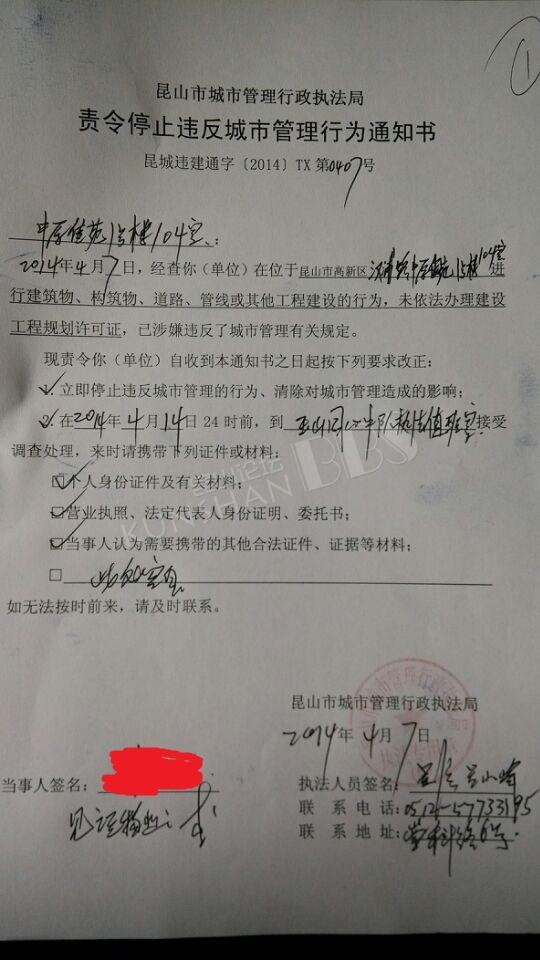 ①
昆山市城市管理行政执法局
责令停止违反城市管理行为通知书
昆城违建通字〔2014〕TX 第0407号
佳苑 104室：
2014年4月7日，经查你（单位）在位于昆山市高新区 104室进
行建筑物、构筑物、道路、管线或其他工程建设的行为，未依法办理建设
工程规划许可证，已涉嫌违反了城市管理有关规定。
现责令你（单位）自收到本通知书之日起按下列要求改正：
1. 立即停止违反城市管理的行为、清除对城市管理造成的影响；
2. 在2014年4月14日24时前，到 中队执法值班室接受
调查处理，来时请携带下列证件或材料：
□个人身份证件及有关材料；
□营业执照、法定代表人身份证明、委托书；
□当事人认为需要携带的其他合法证件、证据等材料；
□
如无法按时前来，请及时联系。
昆山论坛
KUNSHAN BBS
昆山市城市管理行政执法局
2014年4月7日
当事人签名：
执法人员签名：
联系电话：0512-57733195
联系地址：